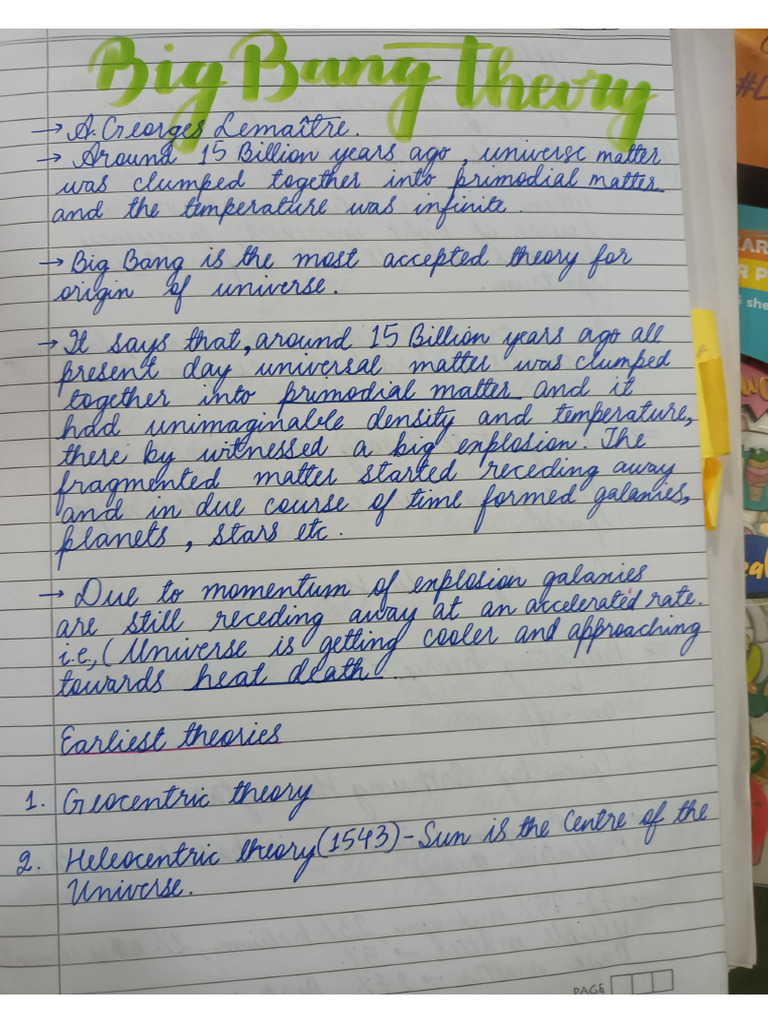 Big Bang Theory
→ A. Georges Lemaître.
→ Around 15 Billion years ago, universe matter
was clumped together into primodial matter
and the temperature was infinite.
→ Big Bang is the most accepted theory for
origin of universe.
→ It says that, around 15 Billion years ago all
present day universal matter was clumped
together into primodial matter and it
had unimaginable density and temperature,
there by witnessed a big explosion. The
fragmented matter started receding away
and in due course of time formed galaxies,
planets, stars etc.
→ Due to momentum of explosion galaxies
are still receding away at an accelerated rate.
i.e, (Universe is getting cooler and approaching
towards heat death.
Earliest theories
1. Geocentric theory
2. Heleocentric theory (1543) - Sun is the Centre of the
Universe.
PAGE